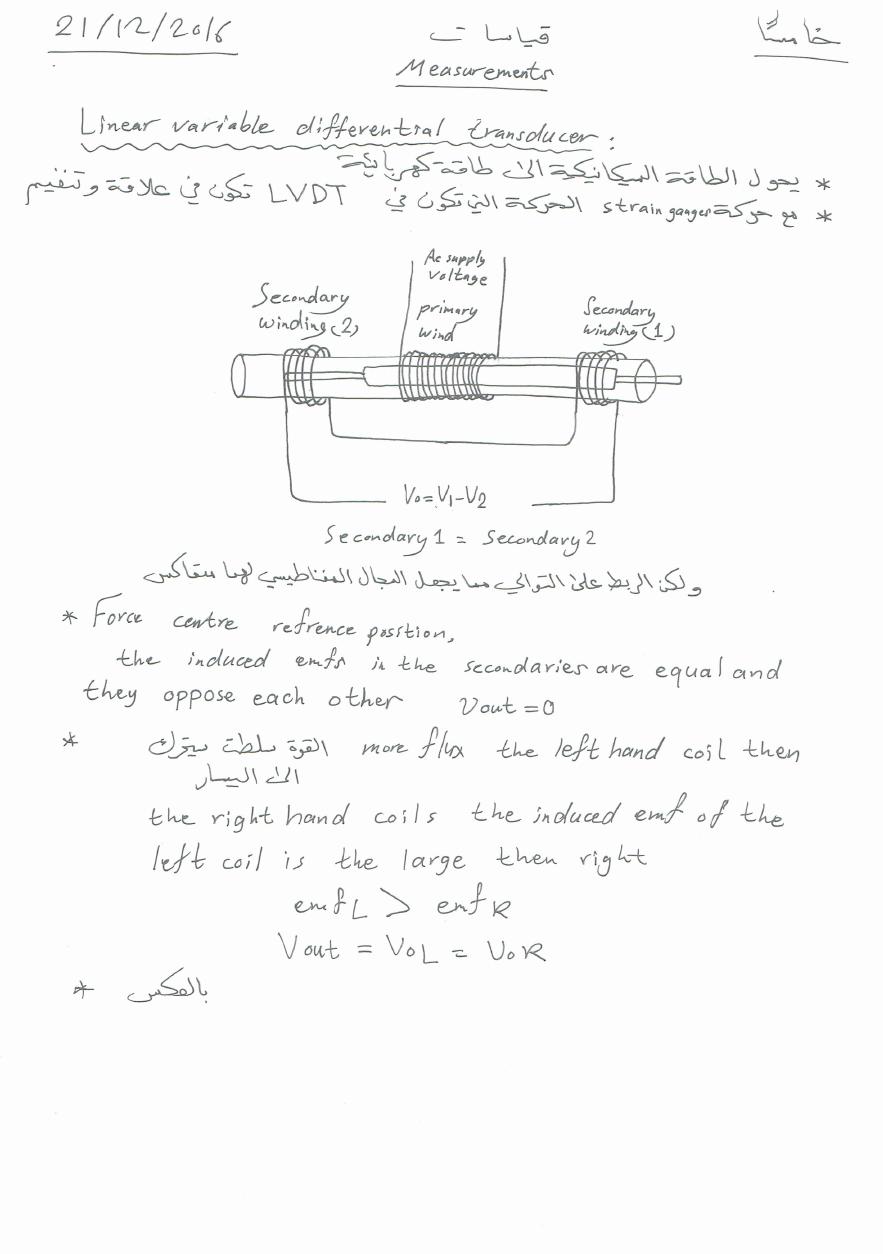 21/12/2016 قياسات خامسًا
Measurements
Linear variable differential transducer :
* يحول الطاقة الميكانيكية الى طاقة كهربائية
* مع حركة strain ganger الحركة التي تكون في LVDT تكون في علاقة و
Ac supply
voltage
Secondary
winding (2)
primary
wind
Secondary
winding (1)
Vo=V1-V2
Secondary 1 = Secondary 2
ولكن الربط على التوالي مما يجعل المجال المغناطيسي لهما متعاكس
* Force centre refrence position,
the induced emfs in the secondaries are equal and
they oppose each other Vout =0
* القوة سلطت سيتحرك more flux the left hand coil then
الى اليسار
the right hand coils the induced emf of the
left coil is the large then right
emf L > emf R
Vout = VoL = VoR
* بالعكس